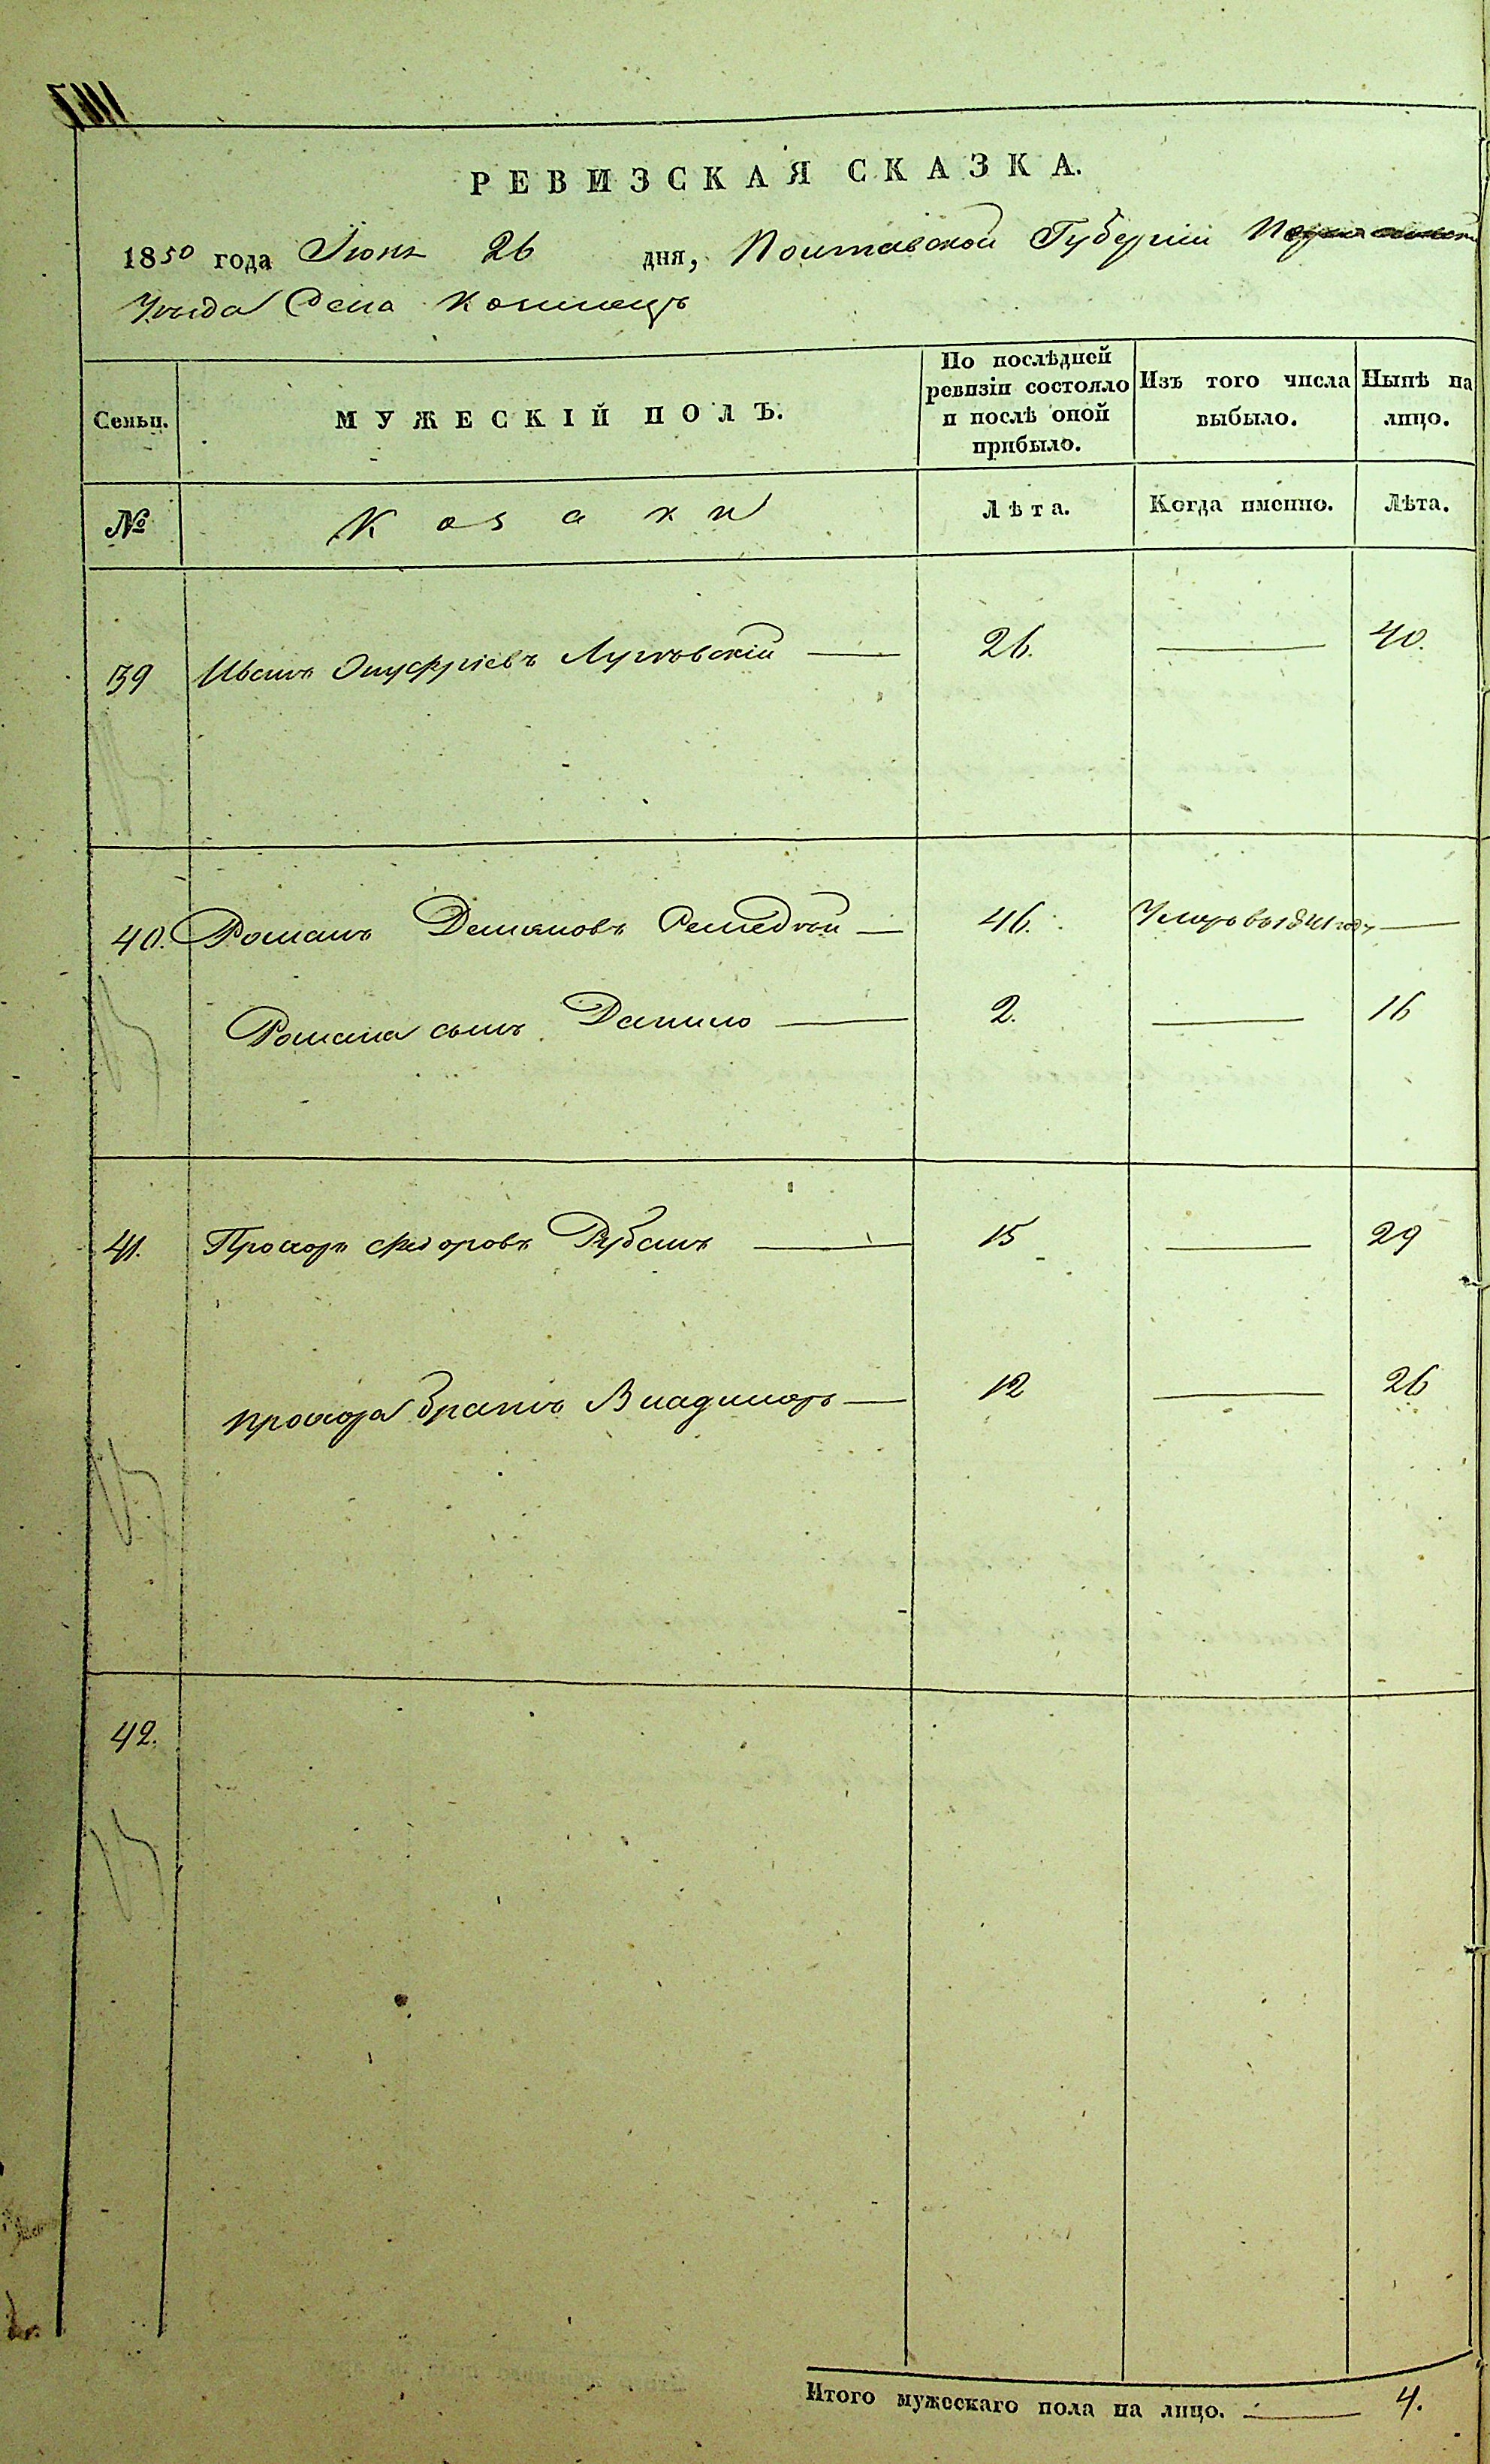 РЕВИЗСКАЯ СКАЗКА.
1850 года Іюня 26 дня, Полтавской Губерніи
Уезда Села
Семьи.
МУЖЕСКІЙ ПОЛЪ.
По послѣдней ревизіи состояло и послѣ оной прибыло.
Изъ того числа выбыло.
Нынѣ на лицо.
№
Козаки
Лѣта.
Когда именно.
Лѣта.
39 Иванъ Онуфріевъ 26. 40.
40. Романъ Демяновъ 46. Умеръ въ 1841 году
Романа сынъ Данило 2. 16
41. Прохоръ Федоровъ Рубанъ 15 29
Прохора братъ Владимеръ 12 26
42.
Итого мужескаго пола на лицо. 4.